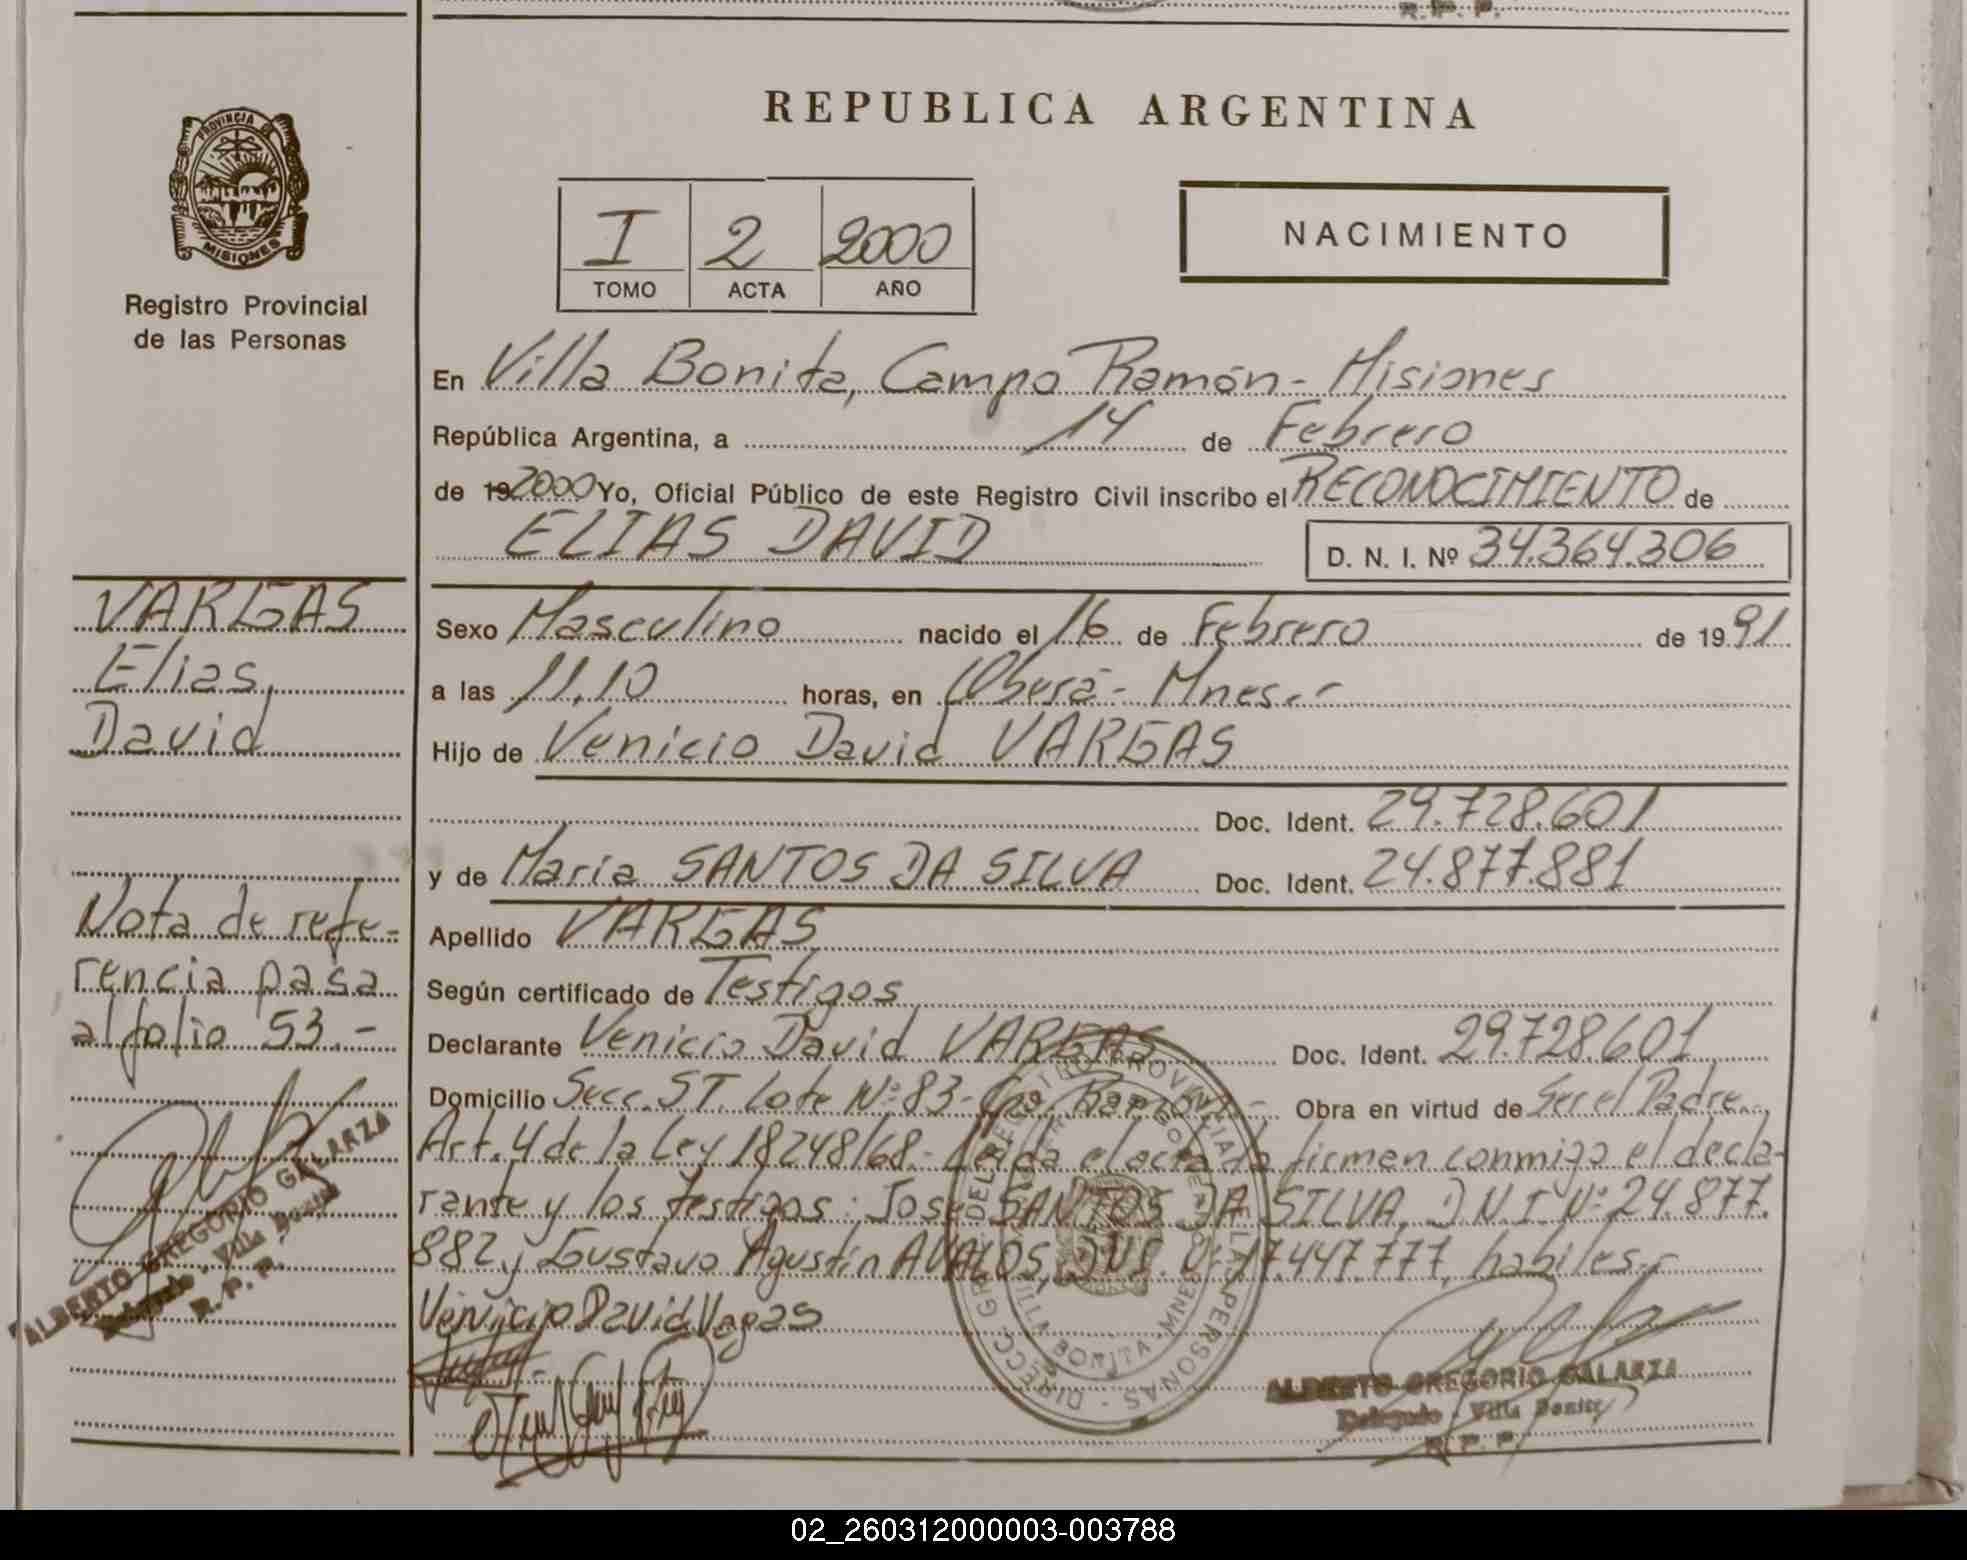 R. P. P.
REPUBLICA ARGENTINA
PROVINCIA DE
MISIONES
Registro Provincial
de las Personas
I 2 2000
TOMO ACTA AÑO
NACIMIENTO
En Villa Bonita, Campo Ramón - Misiones
República Argentina, a 14 de Febrero
de 19 2000 Yo, Oficial Público de este Registro Civil inscribo el RECONOCIMIENTO de
ELIAS DAVID
D. N. I. Nº 34.364.306
VARGAS
Elias,
David
Sexo Masculino nacido el 16 de Febrero de 19 91
a las 11.10 horas, en Oberá - Mnes.-
Hijo de Venicio David VARGAS
Doc. Ident. 29.728.601
y de Maria SANTOS DA SILVA Doc. Ident. 24.877.881
Nota de refe-
rencia pasa
al folio 53.-
ALBERTO GREGORIO GALARZA
Delegado - Villa Bonita
R. P. P.
Apellido VARGAS
Según certificado de Testigos
Declarante Venicio David VARGAS Doc. Ident. 29.728.601
Domicilio Secc. ST. Lote Nº 83 - Cpo. Ramón.- Obra en virtud de Ser el Padre.-
Art. 4 de la Ley 18248/68.- Leida el acta la firmen conmigo el decla-
rante y los testigos: José SANTOS DA SILVA, D.N.I Nº 24.877.
882 y Gustavo Agustín AVALOS, D.N.I. Nº 17.447.777, habiles.-
Venicio David Vagas
DIRECC. GRAL. DEL REGISTRO PROVINCIAL DE LAS PERSONAS
VILLA BONITA - MNES
ALBERTO GREGORIO GALARZA
Delegado - Villa Bonita
R. P. P.
02_260312000003-003788